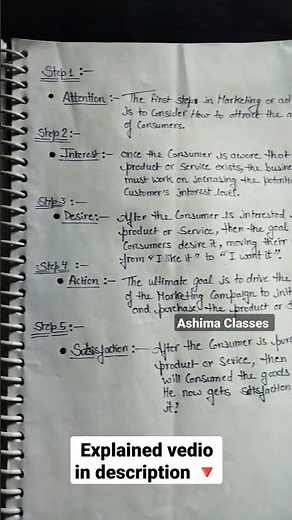 Step 1 :-
• Attention :- The First step in Marketing or ad
is to Consider How to attract the a
of Consumers.
Step 2 :-
• Interest :- once the Consumer is aware that
product or Service exists, the busine
must work on increasing the potent
Customer's interest level.
Step 3 :-
• Desire :- After the Consumer is interested
product or Service, then the goal
Consumers desire it, moving their
from "I like it" to "I want it".
Step 4
• Action :- The ultimate goal is to drive the
of the Marketing Campaign to init
and purchase the product or S
Ashima Classes
Step 5 :-
• Satisfaction :- After the Consumer is pur
product or Sevice, then
will Consumed the goods
He now gets satisfaction
it?
Explained vedio
in description 🔻